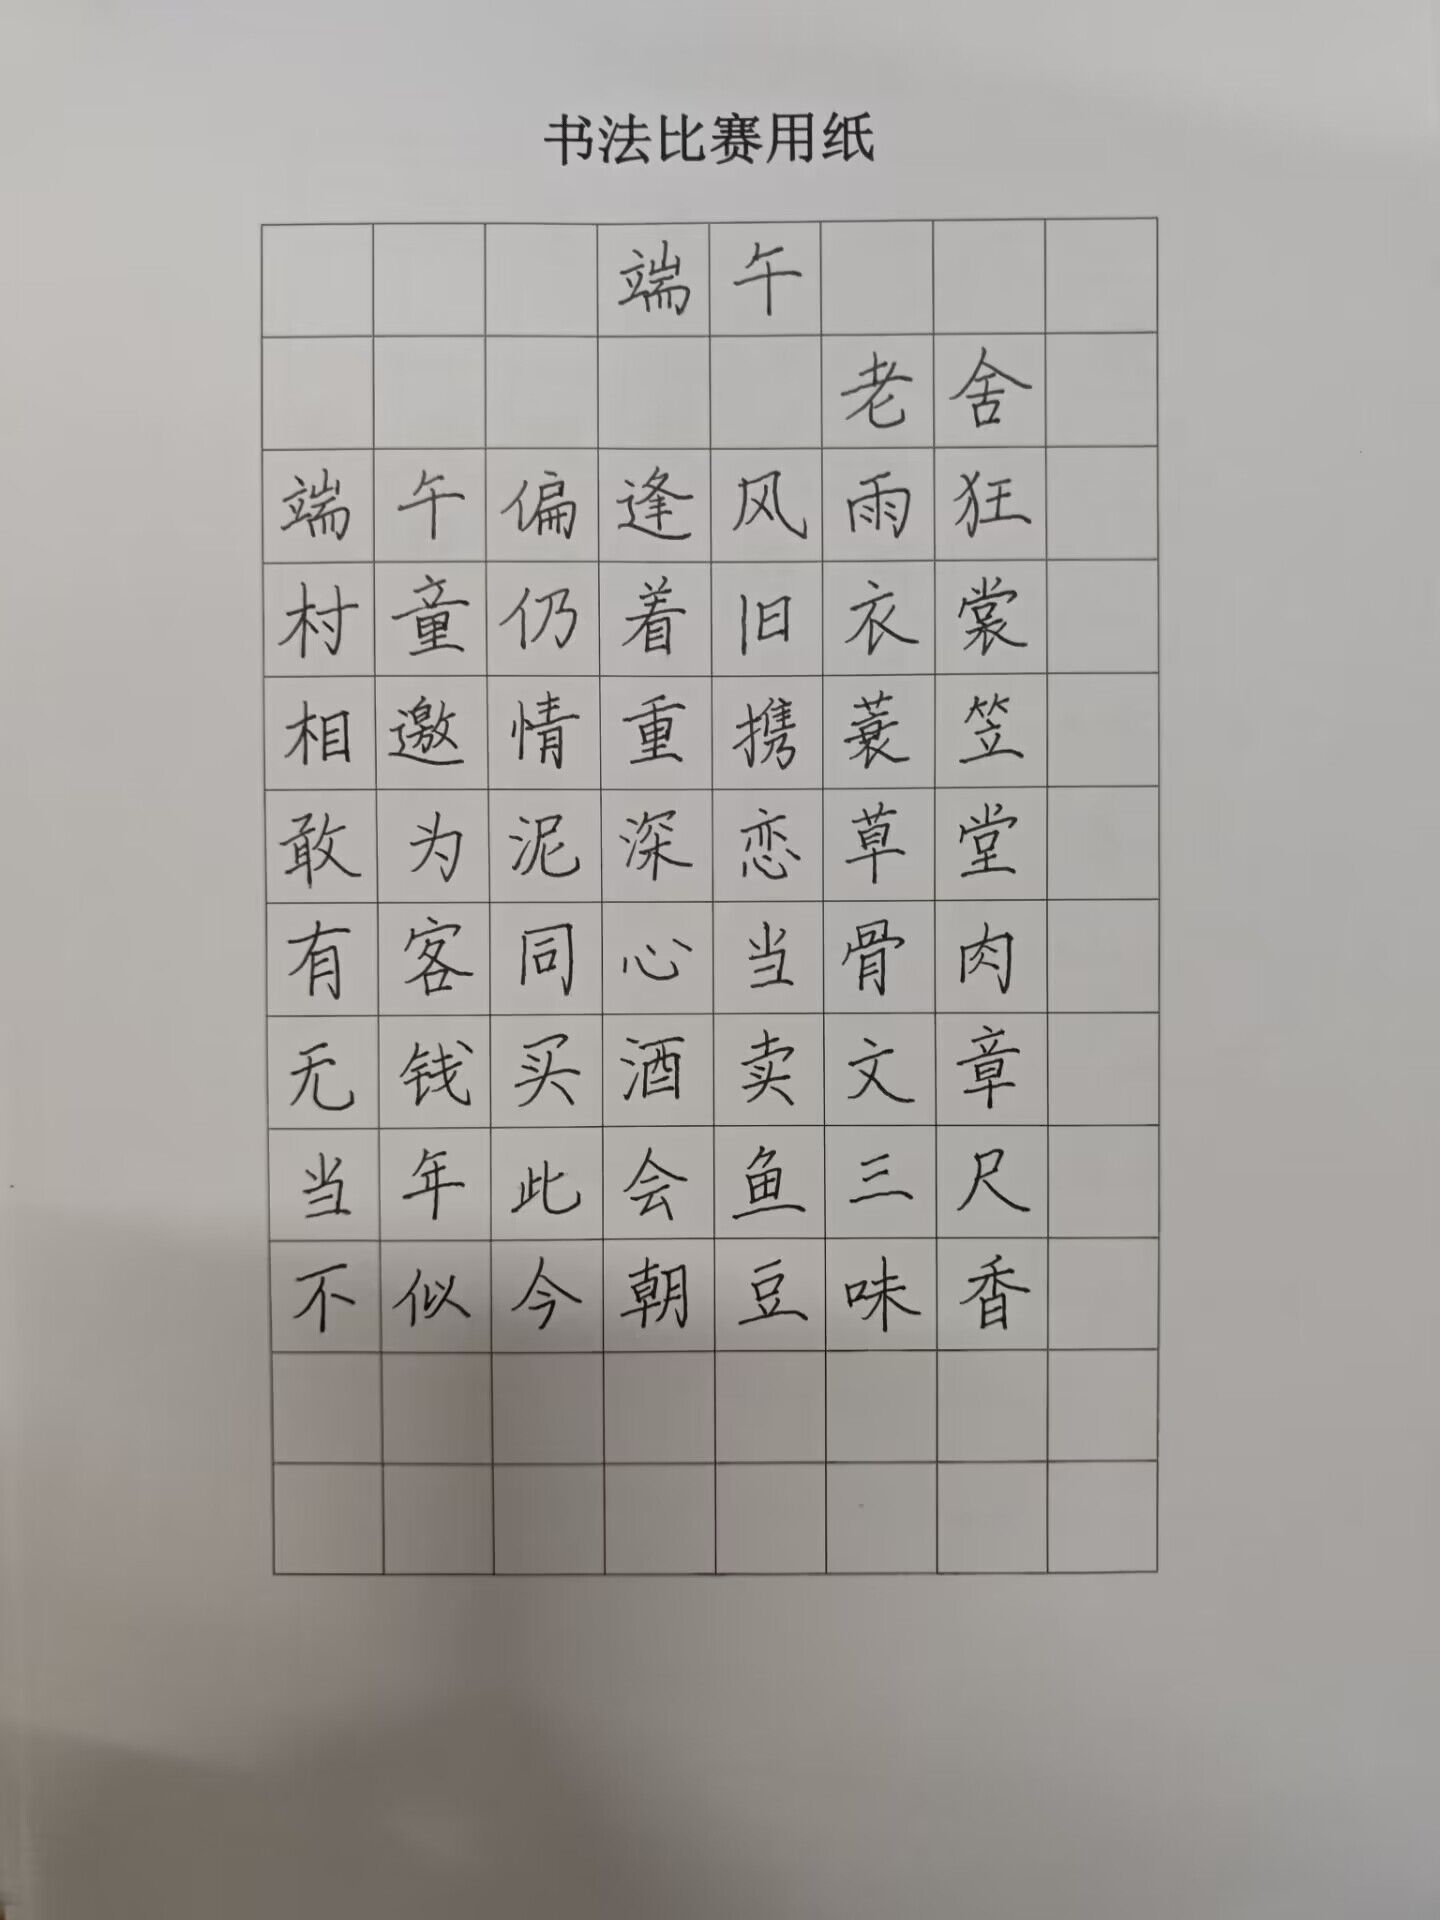 书法比赛用纸
端午
老舍
端午偏逢风雨狂
村童仍着旧衣裳
相邀情重携蓑笠
敢为泥深恋草堂
有客同心当骨肉
无钱买酒卖文章
当年此会鱼三尺
不似今朝豆味香